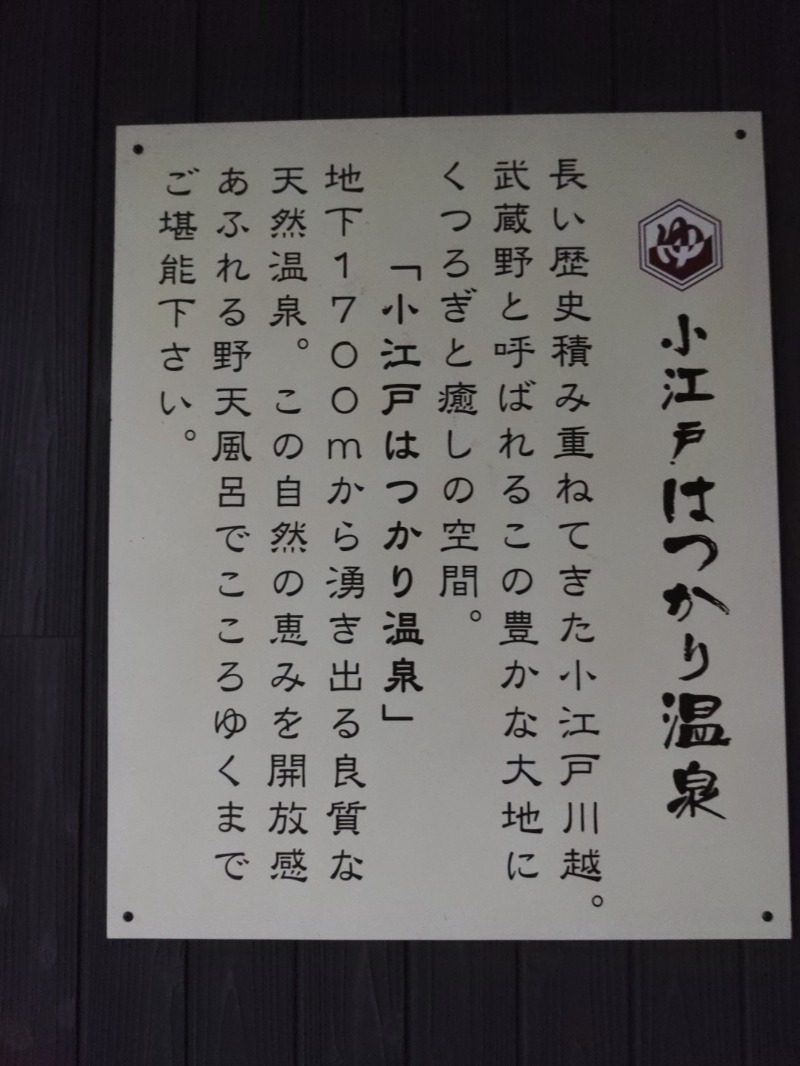 ゆ
小江戸はつかり温泉
長い歴史積み重ねてきた小江戸川越。
武蔵野と呼ばれるこの豊かな大地に
くつろぎと癒しの空間。
「小江戸はつかり温泉」
地下1700mから湧き出る良質な
天然温泉。この自然の恵みを開放感
あふれる野天風呂でこころゆくまで
ご堪能下さい。